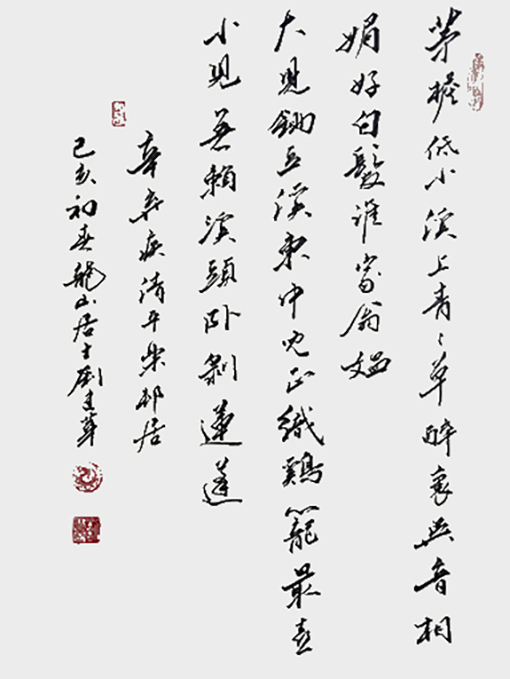 茅檐低小溪上青〻草醉裏吴音相
媚好白髮誰家翁媪
大兒鋤豆溪東中兒正織鷄籠最喜
小兒無賴溪頭卧剥蓮蓬
辛弃疾清平樂邨居
己亥初春龍山居士劉建華